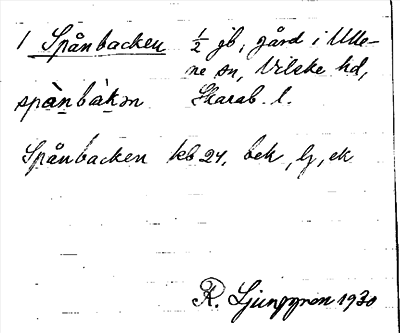 1 Spånbacken ½ gb, gård i Ulle-
ne sn, Vilske hd,
spànbàkən Skarab. l.
Spånbacken kb 24, bek, lg, ek
R. Ljunggren 1930